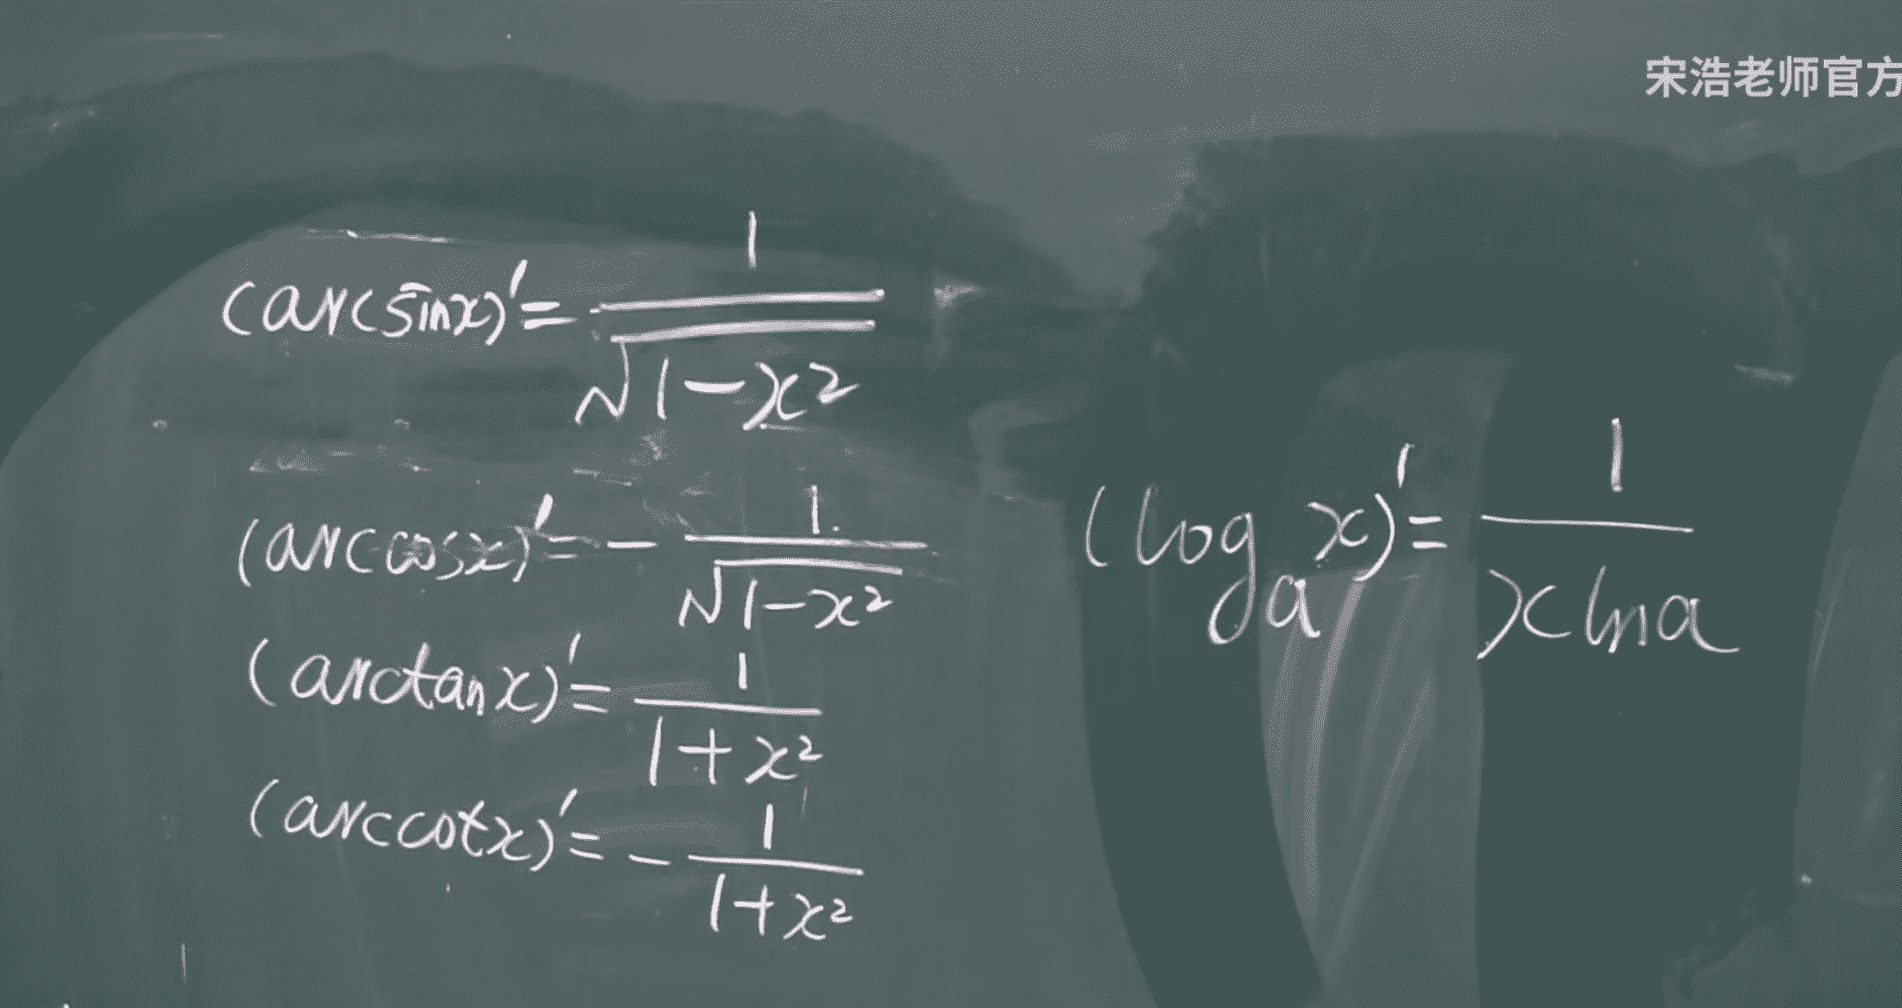 宋浩老师官方
(arcsinx)′ = 1/√(1-x²)
(arccosx)′ = - 1/√(1-x²)
(arctanx)′ = 1/(1+x²)
(arccotx)′ = - 1/(1+x²)
(logₐx)′ = 1/(xlna)